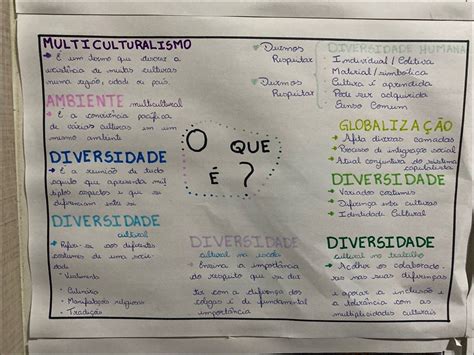 MULTICULTURALISMO
→ É um termo que descreve a
existência de muitas culturas
numa região, cidade ou país.
AMBIENTE multicultural
→ É a convivência pacífica
de várias culturas em um
mesmo ambiente
DIVERSIDADE
→ É a reunião de tudo
aquilo que apresenta múl
tiplos aspectos e que se
diferenciam entre si
DIVERSIDADE
cultural
→ Refere-se aos diferentes
costumes de uma socie
dade
- Vestimenta
- Culinária
- Manifestações religiosas
- Tradições
→ Devemos
Respeitar
→ Devemos
Respeitar
O QUE
É ?
DIVERSIDADE
cultural na escola
→ Ensina a importância
do respeito que se deve
ter com a diferença dos
colegas é de fundamental
importância
DIVERSIDADE HUMANA
→ Individual / Coletiva
→ Material / simbólica
→ Cultura é aprendida
→ Pode ser adquirida
→ Senso Comum
GLOBALIZAÇÃO
→ Afeta diversas camadas
→ Processo de integração social
→ Atual conjuntura do sistema
capitalista
DIVERSIDADE
→ Variados costumes
→ Diferença entre culturas
→ Identidade Cultural
DIVERSIDADE
cultural no trabalho
→ Acolher os colaborado
res nas suas diferenças
e apoiar a inclusão e
a tolerância com as
multiplicidades culturais